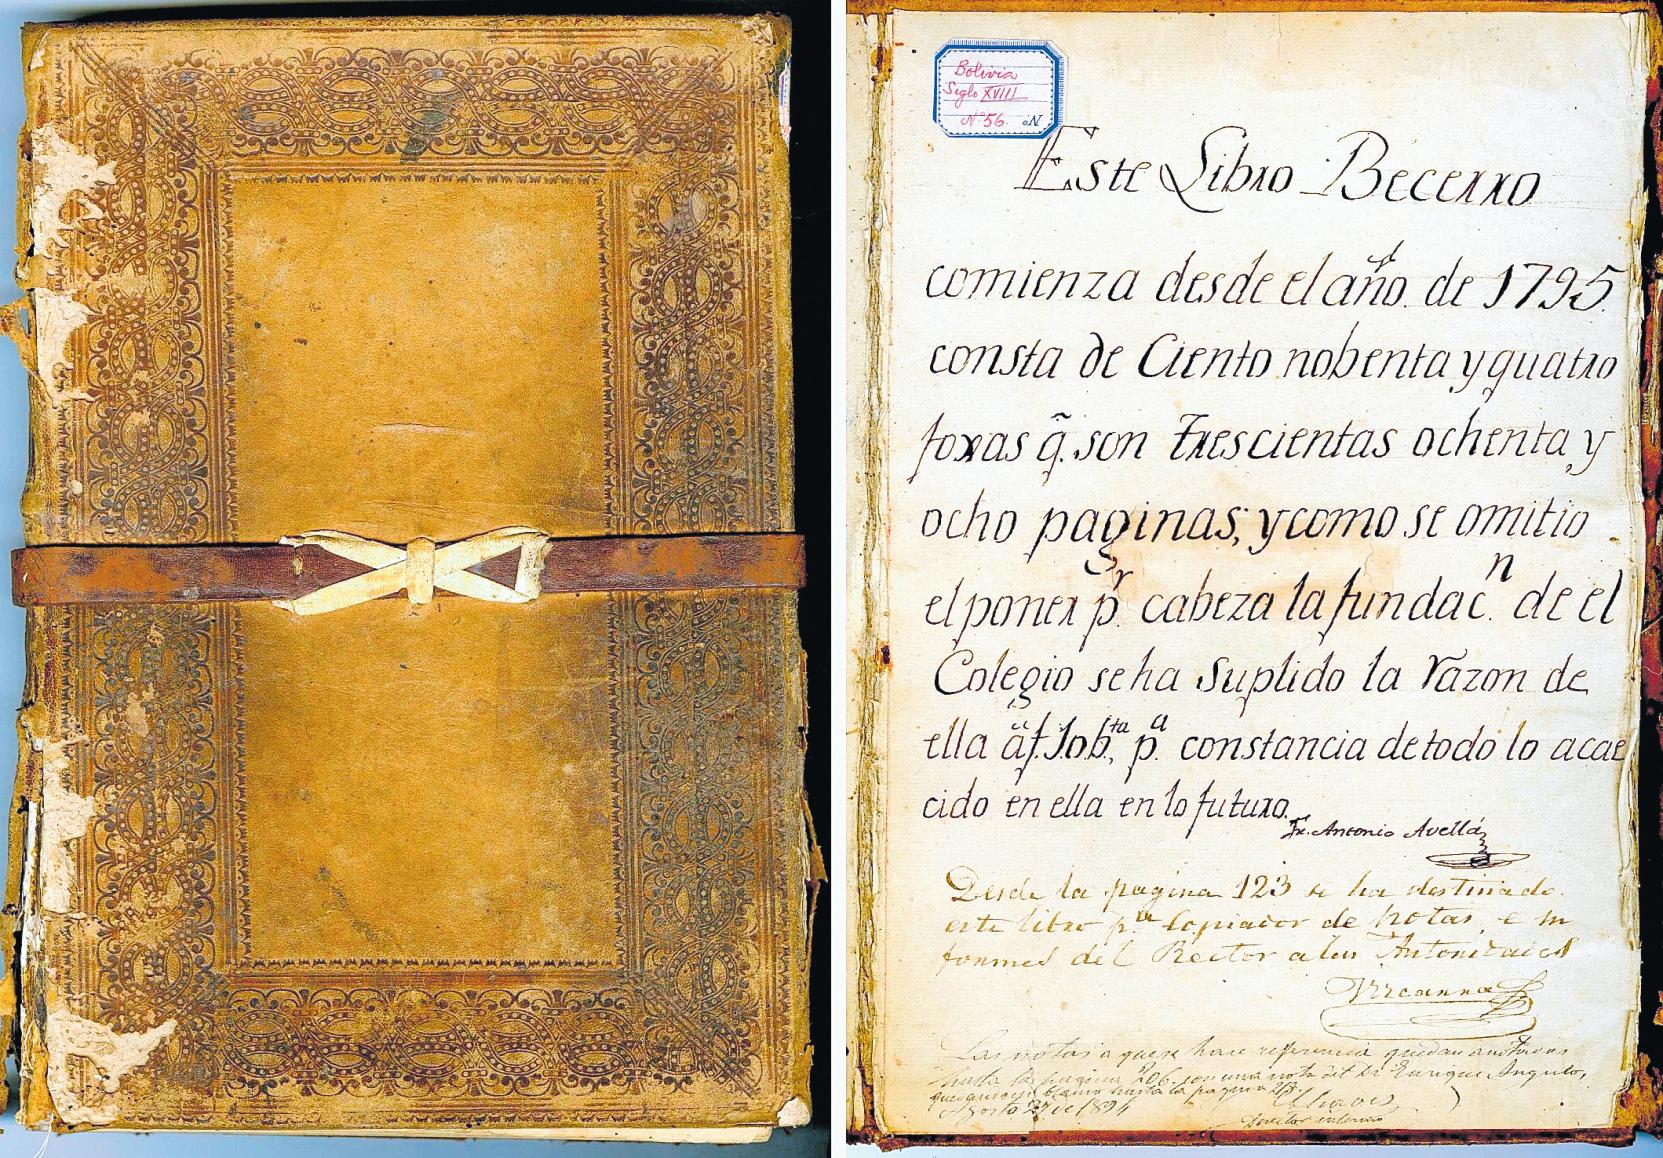 Bolivia
Siglo XVIII
Nº 56.
Este Libro Becerro
comienza desde el año. de 1795.
consta de Ciento nobenta y quatro
foxas q̃. son Trescientas ochenta y
ocho paginas; y como se omitio
el poner pr. cabeza la fundacn. de el
Colegio se ha Suplido la razon de
ella á f. 1. obta, pa. constancia de todo lo acae
cido en ella en lo futuro.
Fr. Antonio Avellá
Desde la pagina 123 se ha destinado
este libro pa. Copiador de notas, e in
formes del Rector a las Autoridades
Las notas a que se hace referencia quedan anotadas
hasta la pagina 206. con una nota del Dr. Enrique Angulo,
hasta la pagina
Agosto 27 de 1894
Director interino